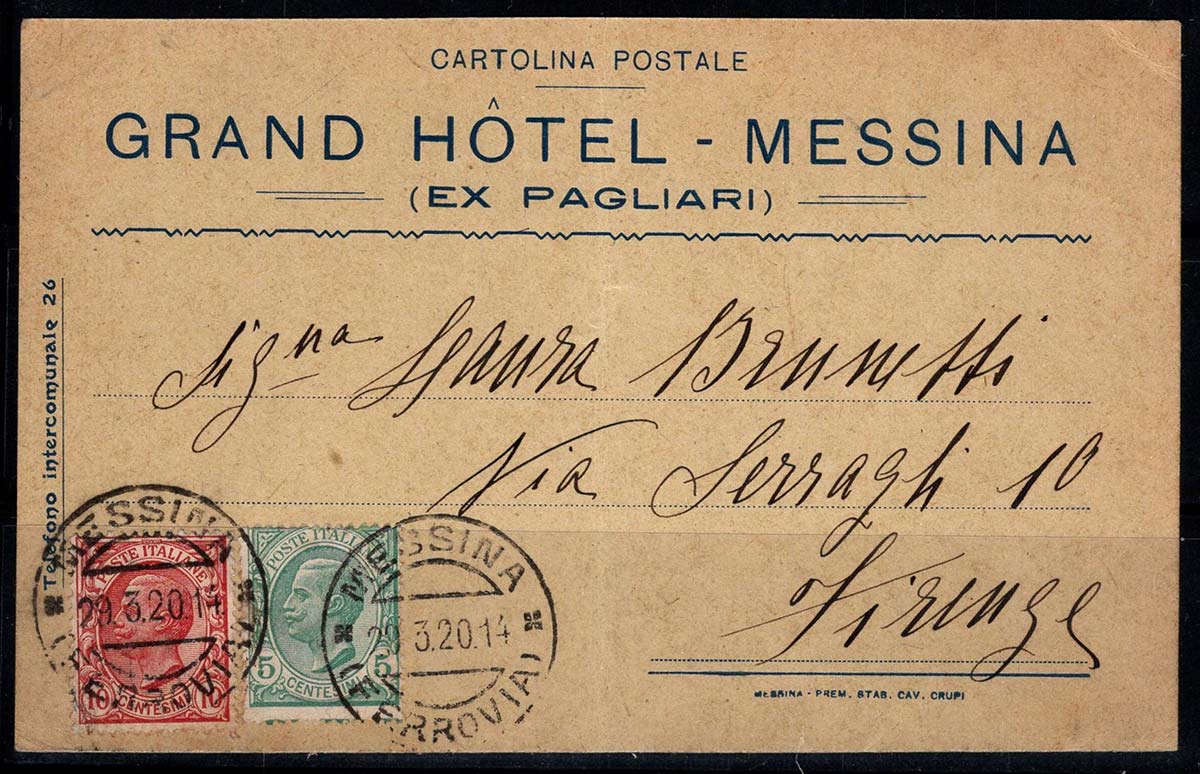 CARTOLINA POSTALE
GRAND HÔTEL - MESSINA
(EX PAGLIARI)
Telefono intercomunale 26
Sig.na Laura Brunetti
Via Serragli 10
Firenze
MESSINA - PREM. STAB. CAV. CRUPI
POSTE ITALIANE
10 CENTESIMI 10
POSTE ITALIANE
5 CENTESIMI 5
MESSINA
29.3.20.14
(FERROVIA)
MESSINA
29.3.20.14
(FERROVIA)